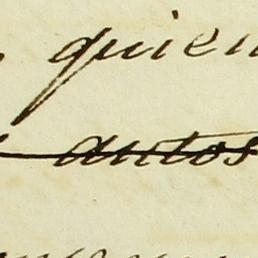 quien
autos